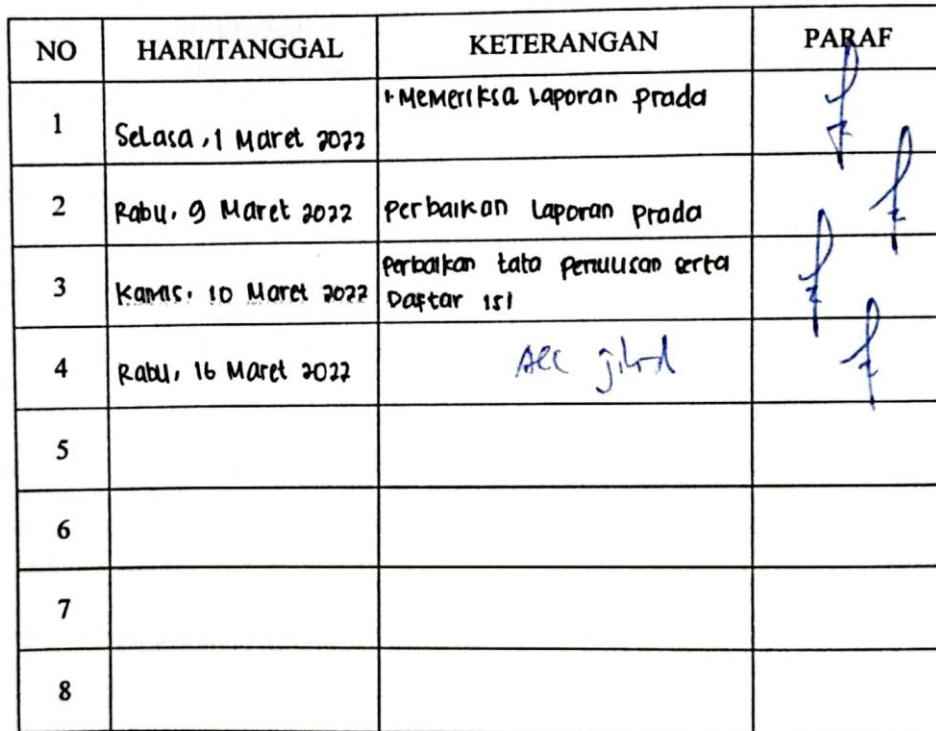 NO HARI/TANGGAL KETERANGAN PARAF
1 Selasa, 1 Maret 2022 1. Memeriksa Laporan prada
2 Rabu, 9 Maret 2022 perbaikan Laporan prada
3 Kamis, 10 Maret 2022 perbaikan tata penulisan serta
Daftar isi
4 Rabu, 16 Maret 2022 Acc jilid
5
6
7
8